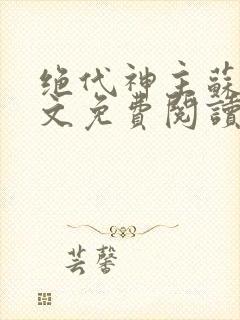 绝代神主蘇
文免費閱讀
芸馨